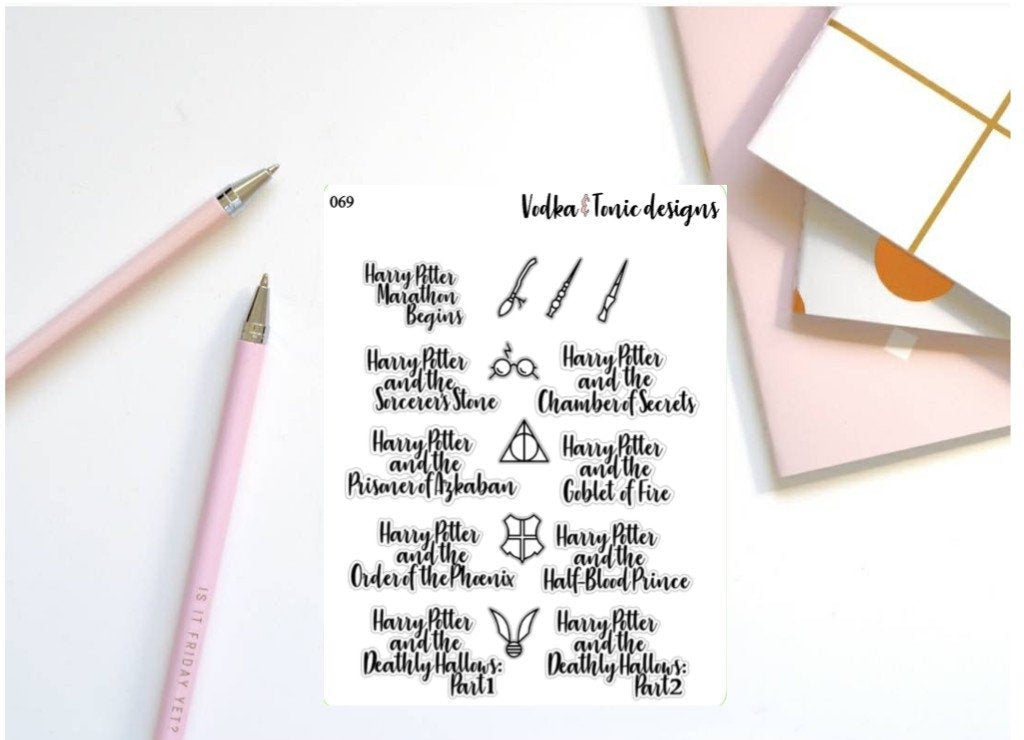 069
Vodka & Tonic designs
Harry Potter
Marathon
Begins
Harry Potter
and the
Sorcerer's Stone
Harry Potter
and the
Chamber of Secrets
Harry Potter
and the
Prisoner of Azkaban
Harry Potter
and the
Goblet of Fire
Harry Potter
and the
Order of the Phoenix
Harry Potter
and the
Half-Blood Prince
Harry Potter
and the
Deathly Hallows:
Part 1
Harry Potter
and the
Deathly Hallows:
Part 2
IS IT FRIDAY YET?